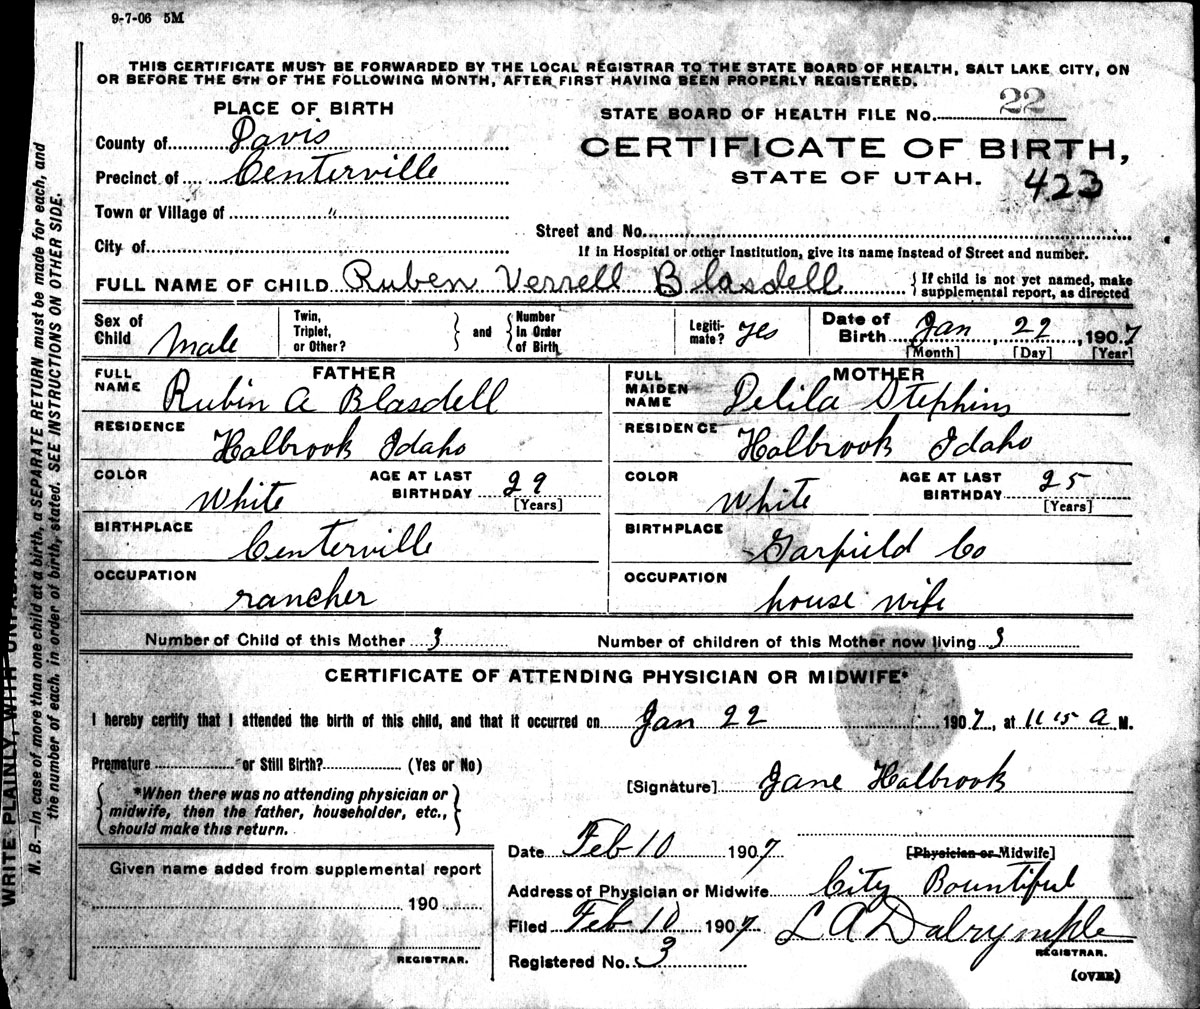 9-7-06 5M
THIS CERTIFICATE MUST BE FORWARDED BY THE LOCAL REGISTRAR TO THE STATE BOARD OF HEALTH, SALT LAKE CITY, ON
OR BEFORE THE 5TH OF THE FOLLOWING MONTH, AFTER FIRST HAVING BEEN PROPERLY REGISTERED.
PLACE OF BIRTH
County of Davis
Precinct of Centerville
Town or Village of "
City of
STATE BOARD OF HEALTH FILE No. 22
CERTIFICATE OF BIRTH,
STATE OF UTAH. 423
Street and No.
If in Hospital or other Institution, give its name instead of Street and number.
FULL NAME OF CHILD Ruben Verrell Blasdell { If child is not yet named, make
supplemental report, as directed
Sex of Child Male
Twin, Triplet, or Other? } and { Number In Order of Birth
Legiti-mate? yes
Date of Birth Jan, 22, 1907
[Month] [Day] [Year]
FATHER
FULL NAME Rubin A Blasdell
RESIDENCE Halbrook Idaho
COLOR White AGE AT LAST BIRTHDAY 29 [Years]
BIRTHPLACE Centerville
OCCUPATION rancher
MOTHER
FULL MAIDEN NAME Delila Stephins
RESIDENCE Halbrook Idaho
COLOR White AGE AT LAST BIRTHDAY 25 [Years]
BIRTHPLACE Garfield Co
OCCUPATION house wife
Number of Child of this Mother 3 Number of children of this Mother now living 3
CERTIFICATE OF ATTENDING PHYSICIAN OR MIDWIFE*
I hereby certify that I attended the birth of this child, and that it occurred on Jan 22 1907, at 11 15 A M.
Premature or Still Birth? (Yes or No)
{ *When there was no attending physician or
midwife, then the father, householder, etc.,
should make this return. }
[Signature] Jane Halbrook
Date Feb 10 1907 [Physician or Midwife]
Address of Physician or Midwife City Bountiful
Filed Feb 10 1907 L A Dalrymple
REGISTRAR.
Registered No. 3
(OVER)
Given name added from supplemental report
190
REGISTRAR.
WRITE PLAINLY, WITH
N. B.—In case of more than one child at a birth, a SEPARATE RETURN must be made for each, and
the number of each. in order of birth, stated. SEE INSTRUCTIONS ON OTHER SIDE.